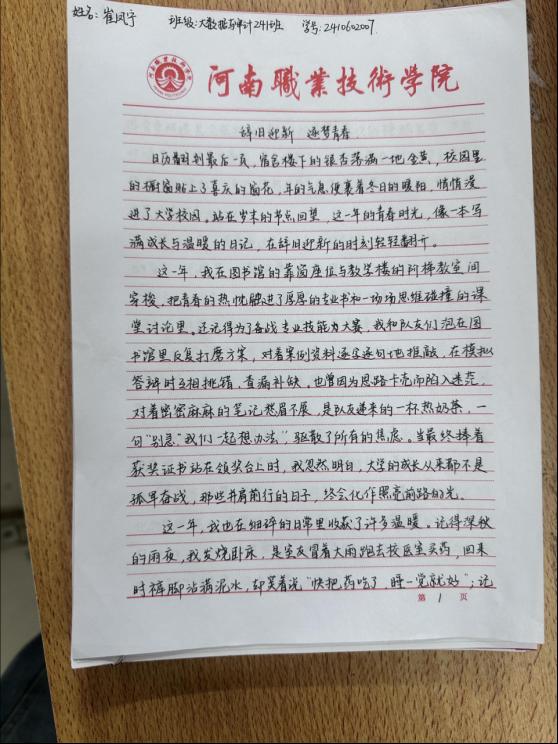 姓名：崔凤宁 班级：大数据与审计241班 学号：2410602007
河南職業技術學院
辞旧迎新 逐梦青春
日历翻到最后一页，宿舍楼下的银杏落满一地金黄，校园里
的橱窗贴上了喜庆的窗花，年的气息便裹着冬日的暖阳，悄悄漫
进了大学校园。站在岁末的节点回望，这一年的青春时光，像一本写
满成长与温暖的日记，在辞旧迎新的时刻轻轻翻开。
这一年，我在图书馆的靠窗座位与教学楼的阶梯教室间
穿梭，把青春的热忱融进了厚厚的专业书和一场场思维碰撞的课
堂讨论里。还记得为了备战专业技能大赛，我和队友们泡在图
书馆里反复打磨方案，对着案例资料逐字逐句地推敲，在模拟
答辩时互相挑错，查漏补缺。也曾因为思路卡壳而陷入迷茫，
对着密密麻麻的笔记愁眉不展，是队友递来的一杯热奶茶，一
句“别急，我们一起想办法”，驱散了所有的焦虑。当最终捧着
获奖证书站在领奖台上时，我忽然明白，大学的成长从来都不是
孤军奋战，那些并肩前行的日子，终会化作照亮前路的光。
这一年，我也在细碎的日常里收获了许多温暖。记得深秋
的雨夜，我发烧卧床，是室友冒着大雨跑去校医室买药，回来
时裤脚沾满泥水，却笑着说“快把药吃了，睡一觉就好”；记
第 1 页